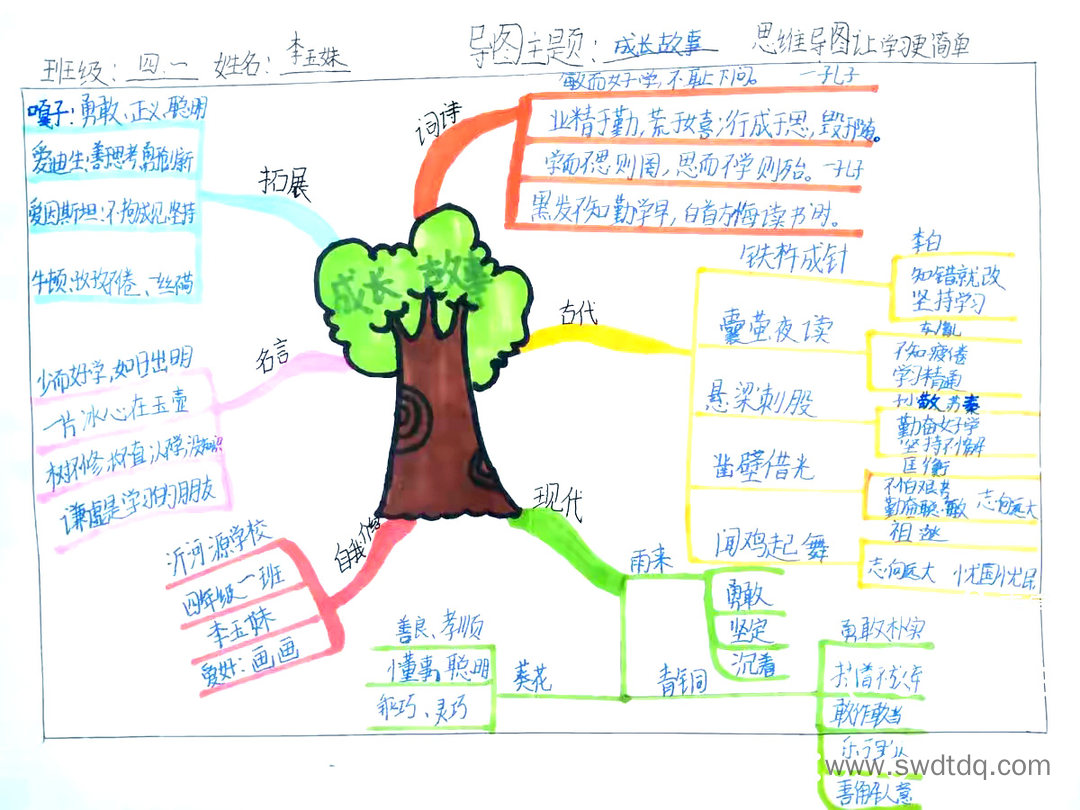 班级：四.一 姓名：李玉姝 导图主题：成长故事 思维导图让学习更简单
成长 故事
词诗
敏而好学，不耻下问。 —孔子
业精于勤，荒于嬉；行成于思，毁于随。
学而不思则罔，思而不学则殆。—孔子
黑发不知勤学早，白首方悔读书时。
古代
铁杵成针
李白
知错就改
坚持学习
囊萤夜读
车胤
不知疲倦
学习精通
悬梁刺股
孙敬 苏秦
勤奋好学
坚持不懈
凿壁借光
匡衡
不怕艰苦
勤奋聪敏 志向远大
闻鸡起舞
祖逖
志向远大 忧国忧民
现代
雨来
勇敢
坚定
沉着
青铜
勇敢朴实
敢作敢当
善解人意
葵花
善良、孝顺
懂事、聪明
灵巧
自我介绍
沂河源学校
四年级一班
李玉姝
爱好：画画
名言
少而好学，如日出阳
一片冰心在玉壶
树不修，长不直；人不学，没知识
谦虚是学习的朋友
拓展
嘎子：勇敢、正义、聪明
爱迪生：善思考、勇创新
爱因斯坦：不拘成见、坚持
牛顿：孜孜不倦、一丝不苟
www.swdtdq.com